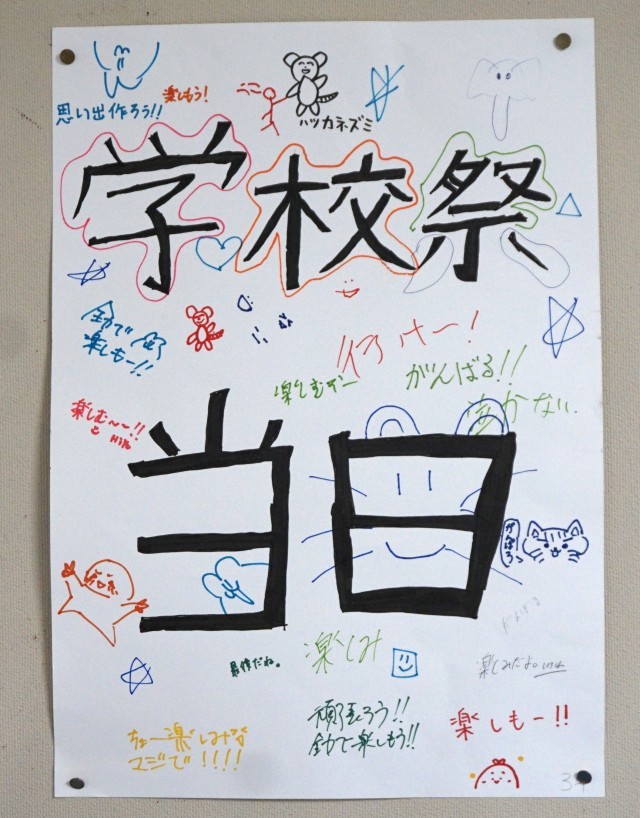 思い出作ろう!!
楽しもう!
ハツカネズミ
学校祭
全力で
楽しもー!!
行けー!
楽しむぞー
がんばる!!
楽しむ〜〜!!
当日
がんばろう
楽しみ
最高だね。
楽しみだよ。
ちょー楽しみだな
マジで!!!!
頑張ろう!!
全力で楽しもう!!
楽しもー!!